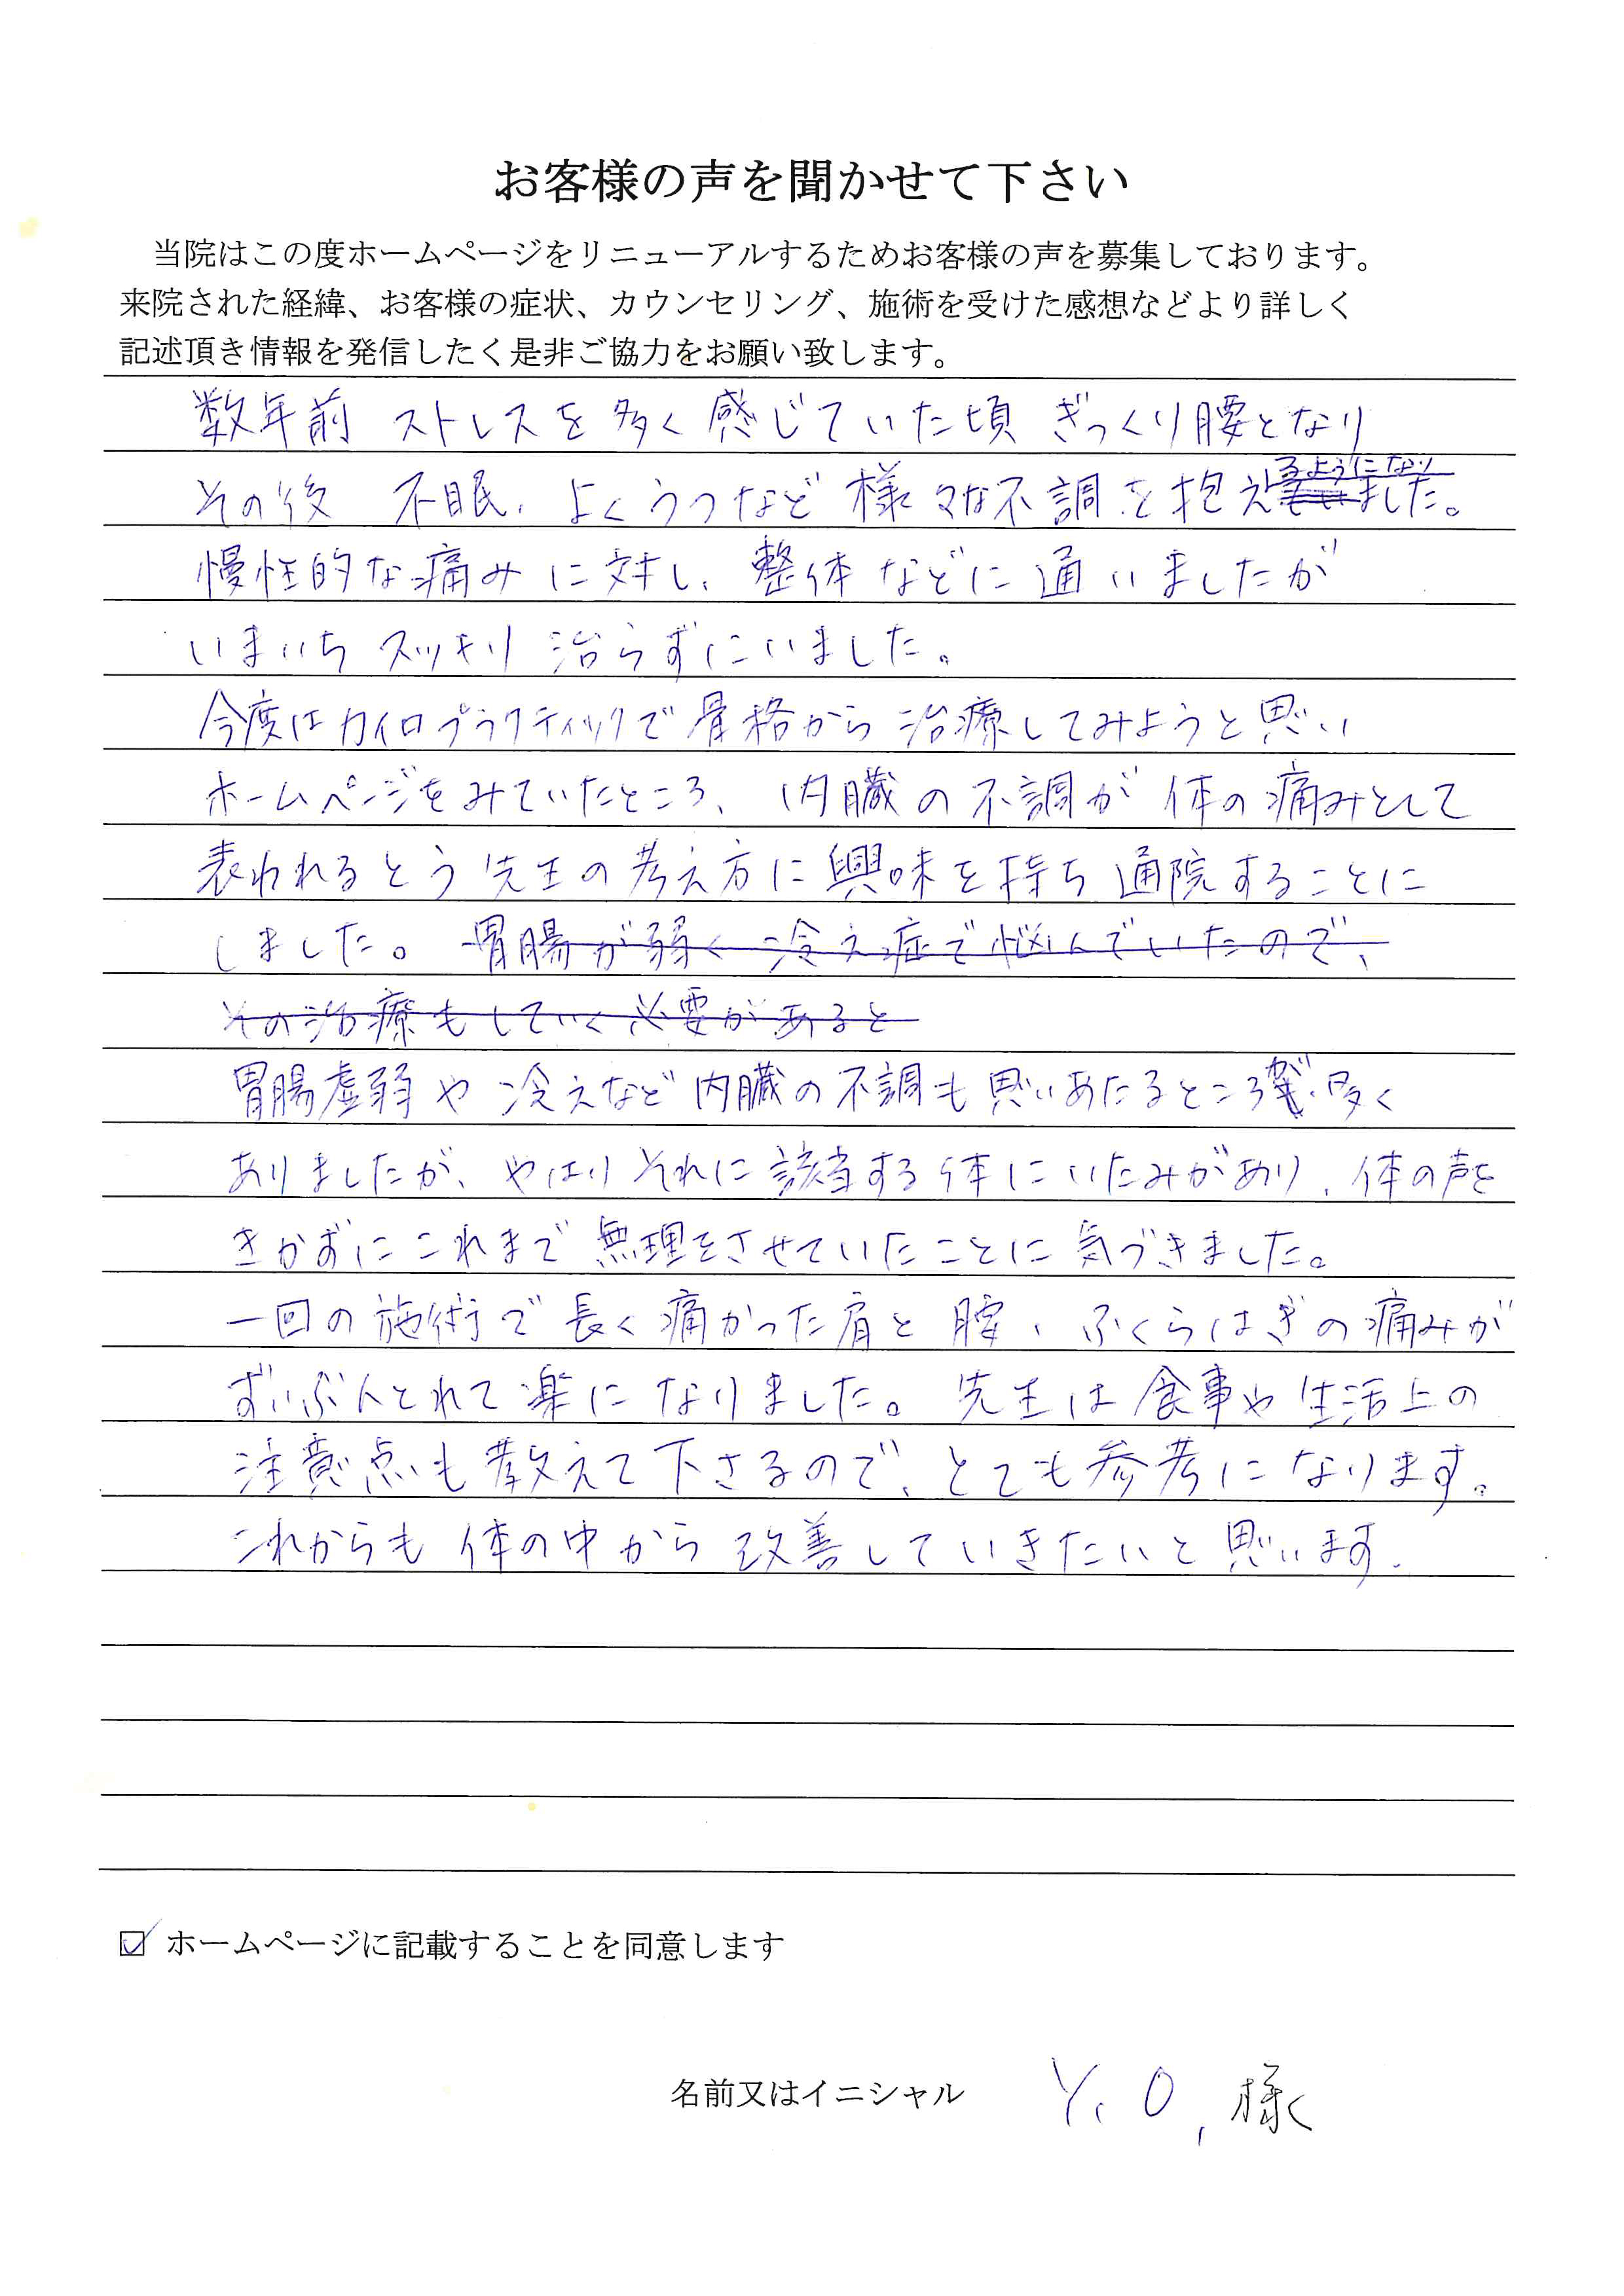 お客様の声を聞かせて下さい
当院はこの度ホームページをリニューアルするためお客様の声を募集しております。
来院された経緯、お客様の症状、カウンセリング、施術を受けた感想などより詳しく
記述頂き情報を発信したく是非ご協力をお願い致します。
数年前 ストレスを多く感じていた頃 ぎっくり腰となり
るようになり
その後 不眠、よくうつなど様々な不調を抱えました。
慢性的な痛みに対し、整体などに通いましたが
いまいちスッキリ治らずにいました。
今度はカイロプラクティックで骨格から治療してみようと思い
ホームページをみていたところ、内臓の不調が体の痛みとして
表われるとう先生の考え方に興味を持ち通院することに
しました。胃腸が弱く冷え症で悩んでいたので、
その治療もしていく必要があると
胃腸虚弱や冷えなど内臓の不調も思いあたるところが多く
ありましたが、やはりそれに該当する体にいたみがあり、体の声を
きかずにこれまで無理をさせていたことに気づきました。
一回の施術で長く痛かった肩と腰、ふくらはぎの痛みが
ずいぶんとれて楽になりました。先生は食事や生活上の
注意点も教えて下さるので、とても参考になります。
これからも体の中から改善していきたいと思います.
☑ ホームページに記載することを同意します
名前又はイニシャル Y.O. 様